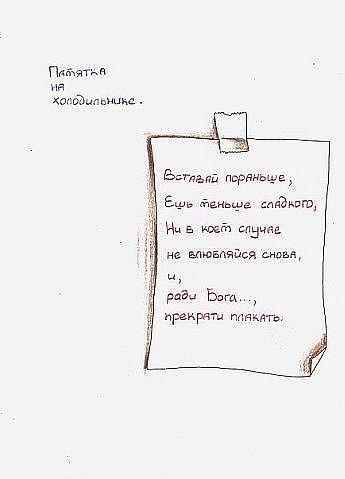 Памятка
на
холодильнике.
Вставай пораньше,
Ешь меньше сладкого,
Ни в коем случае
не влюбляйся снова,
и,
ради Бога...,
прекрати плакать.